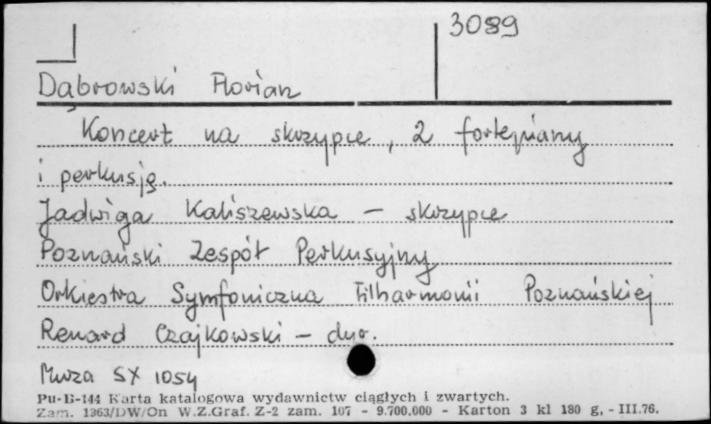 3089
Dąbrowski Florian
Koncert na skrzypce, 2 fortepiany
i perkusję.
Jadwiga Kaliszewska – skrzypce
Poznański Zespół Perkusyjny
Orkiestra Symfoniczna Filharmonii Poznańskiej
Renard Czajkowski – dyr.
Muza SX 1054
Pu-B-144 Karta katalogowa wydawnictw ciągłych i zwartych.
Zam. 1363/DW/On W.Z.Graf. Z-2 zam. 107 - 9.700.000 - Karton 3 kl 180 g, - III.76.